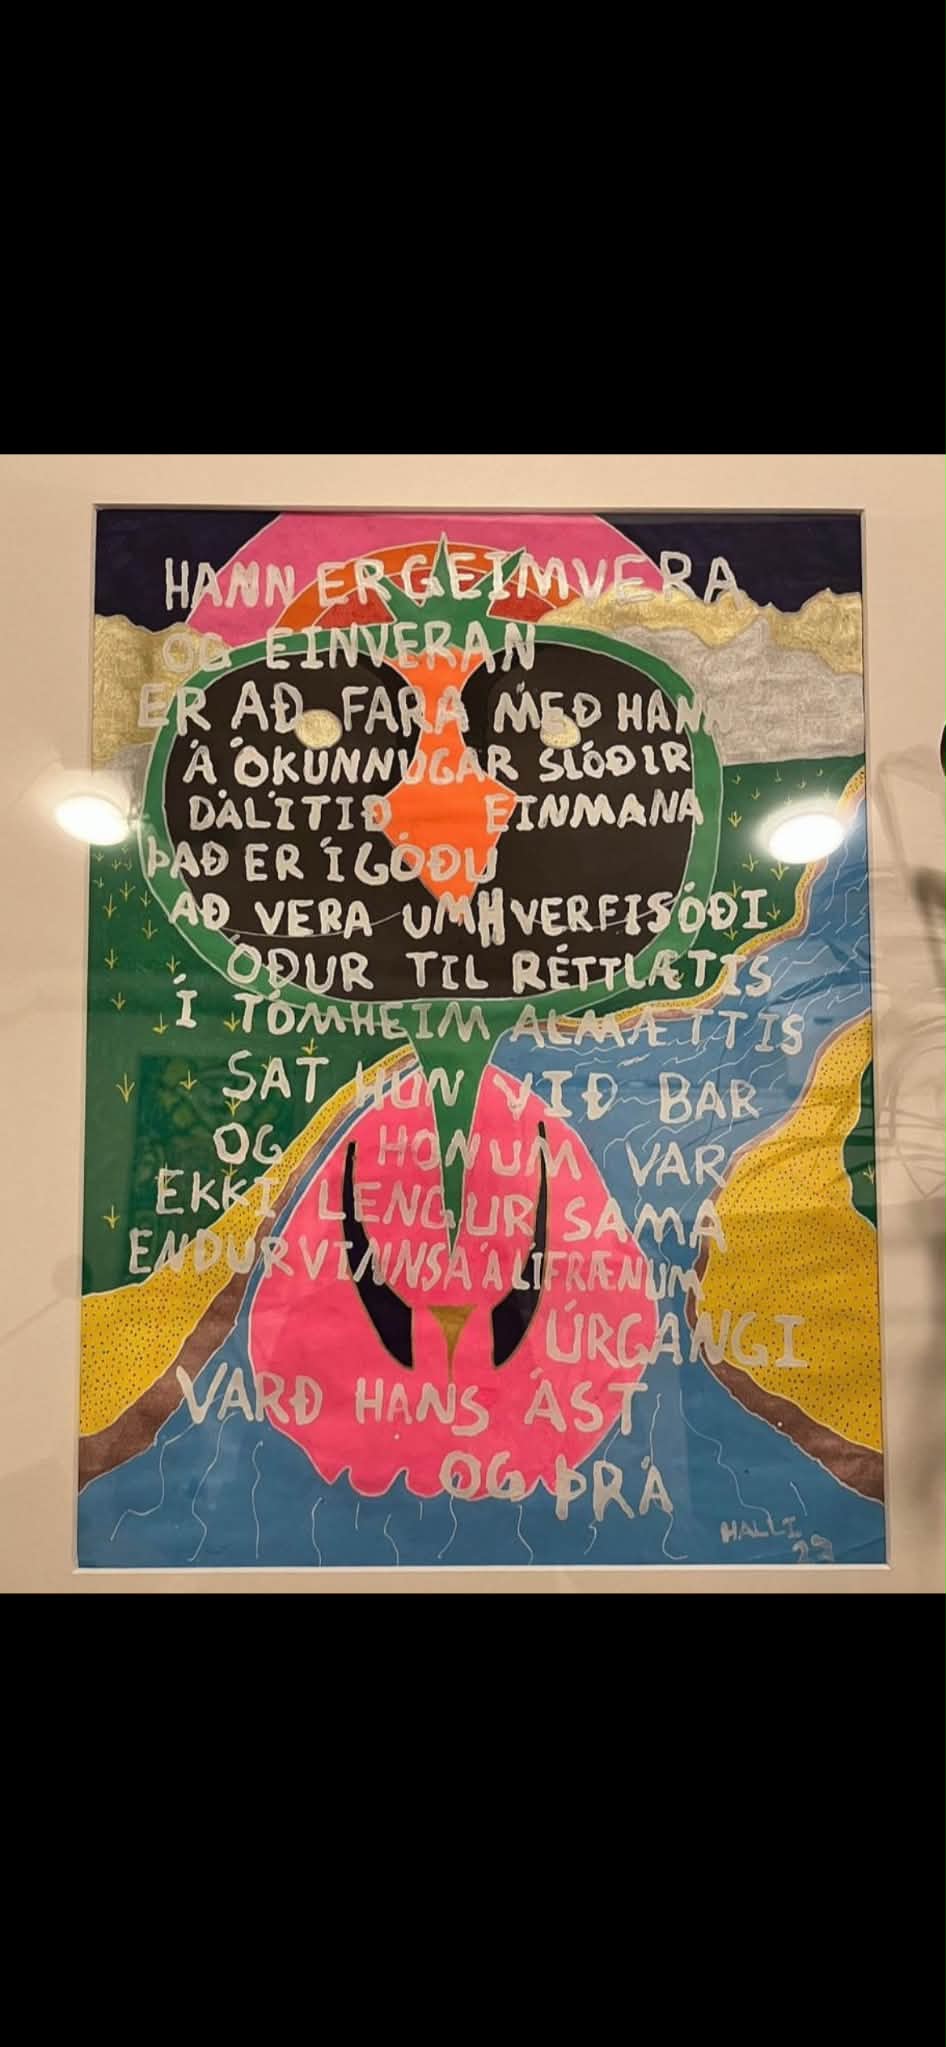 HANN ER GEIMVERA
OG EINVERAN
ER AÐ FARA MEÐ HANN
Á ÓKUNNUGAR SLÓÐIR
DÁLITIÐ EINMANA
ÞAÐ ER Í GÓÐU
AÐ VERA UMHVERFISÓÐI
ÓÐUR TIL RÉTTLÆTIS
Í TÓMHEIM ALMÆTTIS
SAT HÚN VIÐ BAR
OG HONUM VAR
EKKI LENGUR SAMA
ENDURVINNSA Á LÍFRÆNUM
ÚRGANGI
VARÐ HANS ÁST
OG ÞRÁ
HALLI